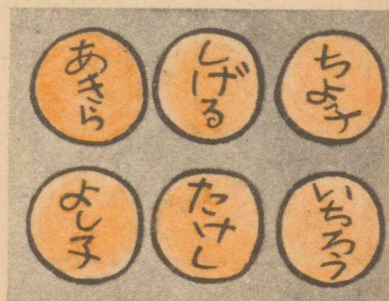 ちよ子
しげる
あきら
いちろう
たけし
よし子